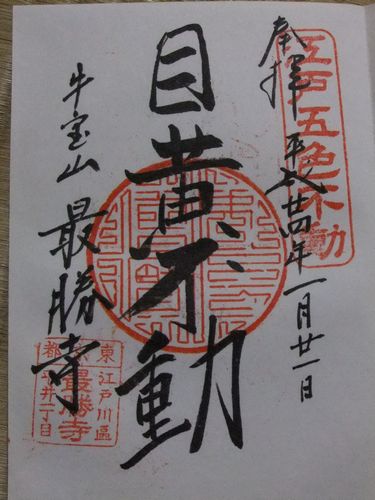 江戸五色不動
奉拝 平成廿四年一月廿一日
目黄不動
牛宝山 最勝寺
東京都
江戸川區
平井一丁目
最勝寺